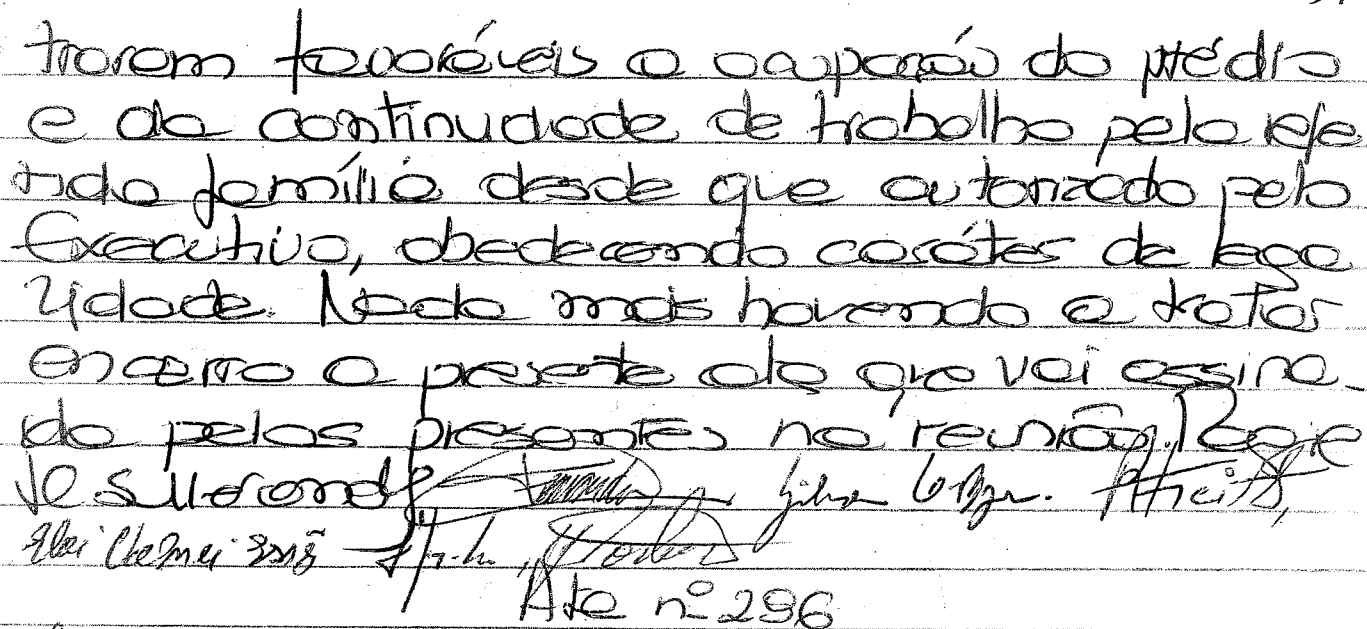 traram favoráveis a ocupação do prédio
e da continuidade de trabalho pela refe
rida família desde que autorizado pelo
Executivo, obedecendo caráter de lega
lidade. Nada mais havendo a tratar
encerro a presente ata que vai assina_
do pelos presentes na reunião.
Ata nº 296